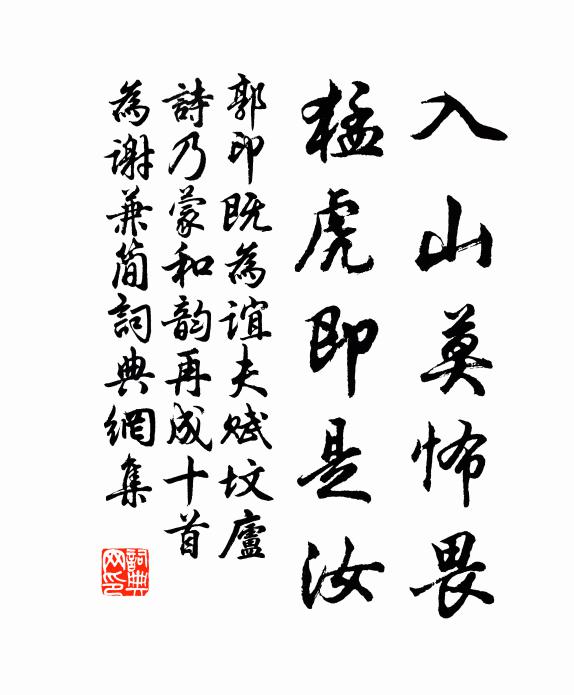 入山莫怖畏
猛虎即是汝
郭印既為誼夫賦墳廬
詩乃蒙和韵再成十首
為謝兼简詞典網集
詞典
网印